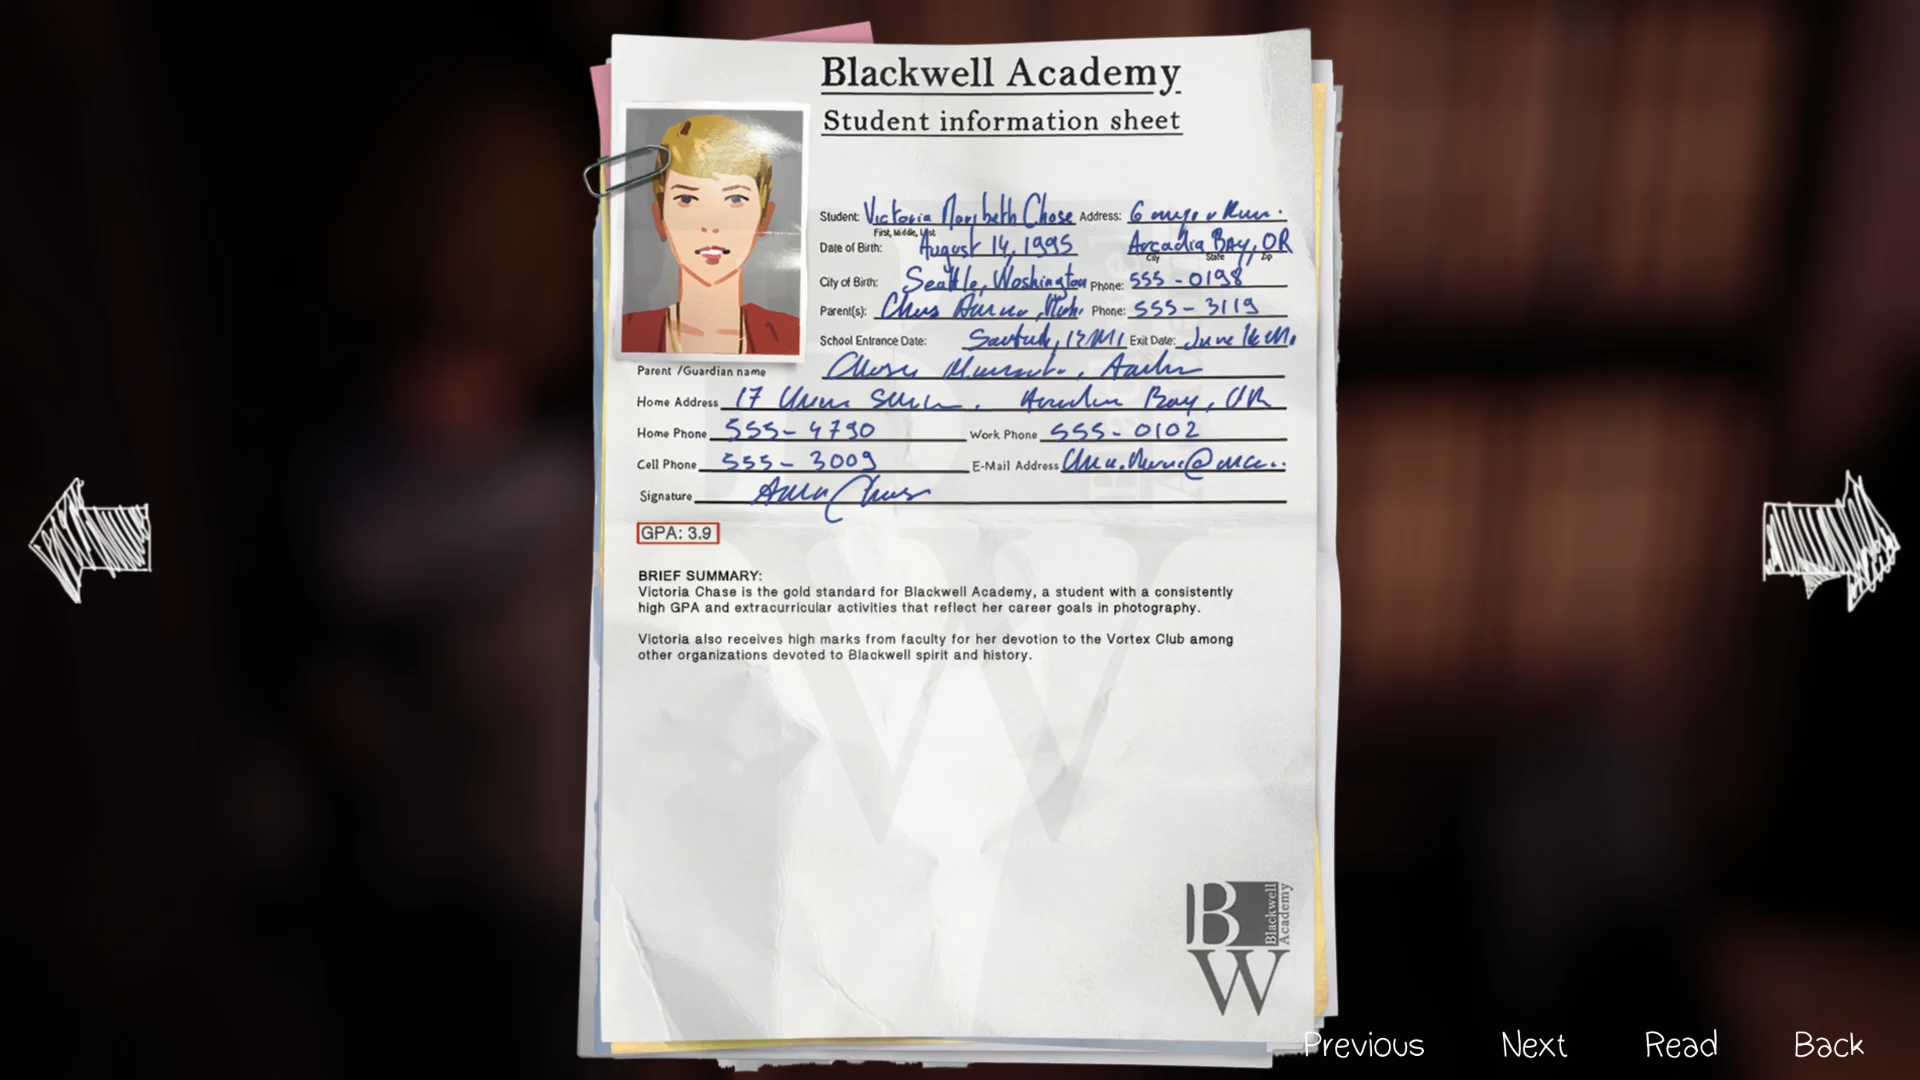 Blackwell Academy
Student information sheet
Student: Victoria Maribeth Chase Address: Run.
First, Middle, Last
Date of Birth: August 14, 1995 Arcadia Bay, OR
City State Zip
City of Birth: Seattle, Washington Phone: 555-0198
Parent(s): Phone: 555-3119
School Entrance Date: Exit Date: June
Parent /Guardian name
Home Address 17 Bay, OR
Home Phone 555-4790 Work Phone 555-0102
Cell Phone 555-3009 E-Mail Address
Signature
GPA: 3.9
BRIEF SUMMARY:
Victoria Chase is the gold standard for Blackwell Academy, a student with a consistently
high GPA and extracurricular activities that reflect her career goals in photography.
Victoria also receives high marks from faculty for her devotion to the Vortex Club among
other organizations devoted to Blackwell spirit and history.
B
Blackwell
Academy
W
Previous Next Read Back